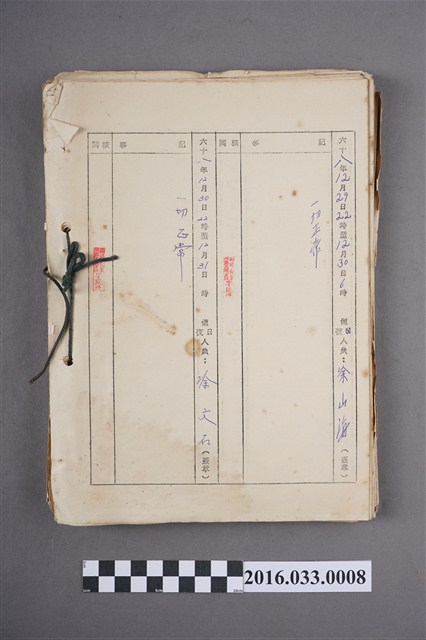 六十八年12月29日22時至12月30日6時 值日夜人員：徐山海（簽章）
記事
一切正常
核閱
六十八年12月30日22時至12月31日 時 值日夜人員：涂文石（簽章）
記事
一切正常
核閱
2016.033.0008